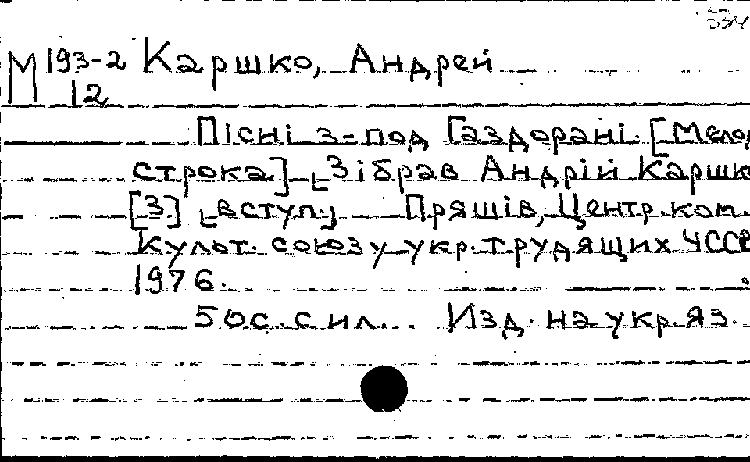 М 193-2 Каршко, Андрей
12
Пісні з-под Газдорані. [Мелод
строка.] [Зібрав Андрій Каршк
[З] [вступ.] Пряшів, Центр. ком.
Культ. союзу укр. трудящих ЧССР
1976.
50с. с ил. Изд. на укр. яз.